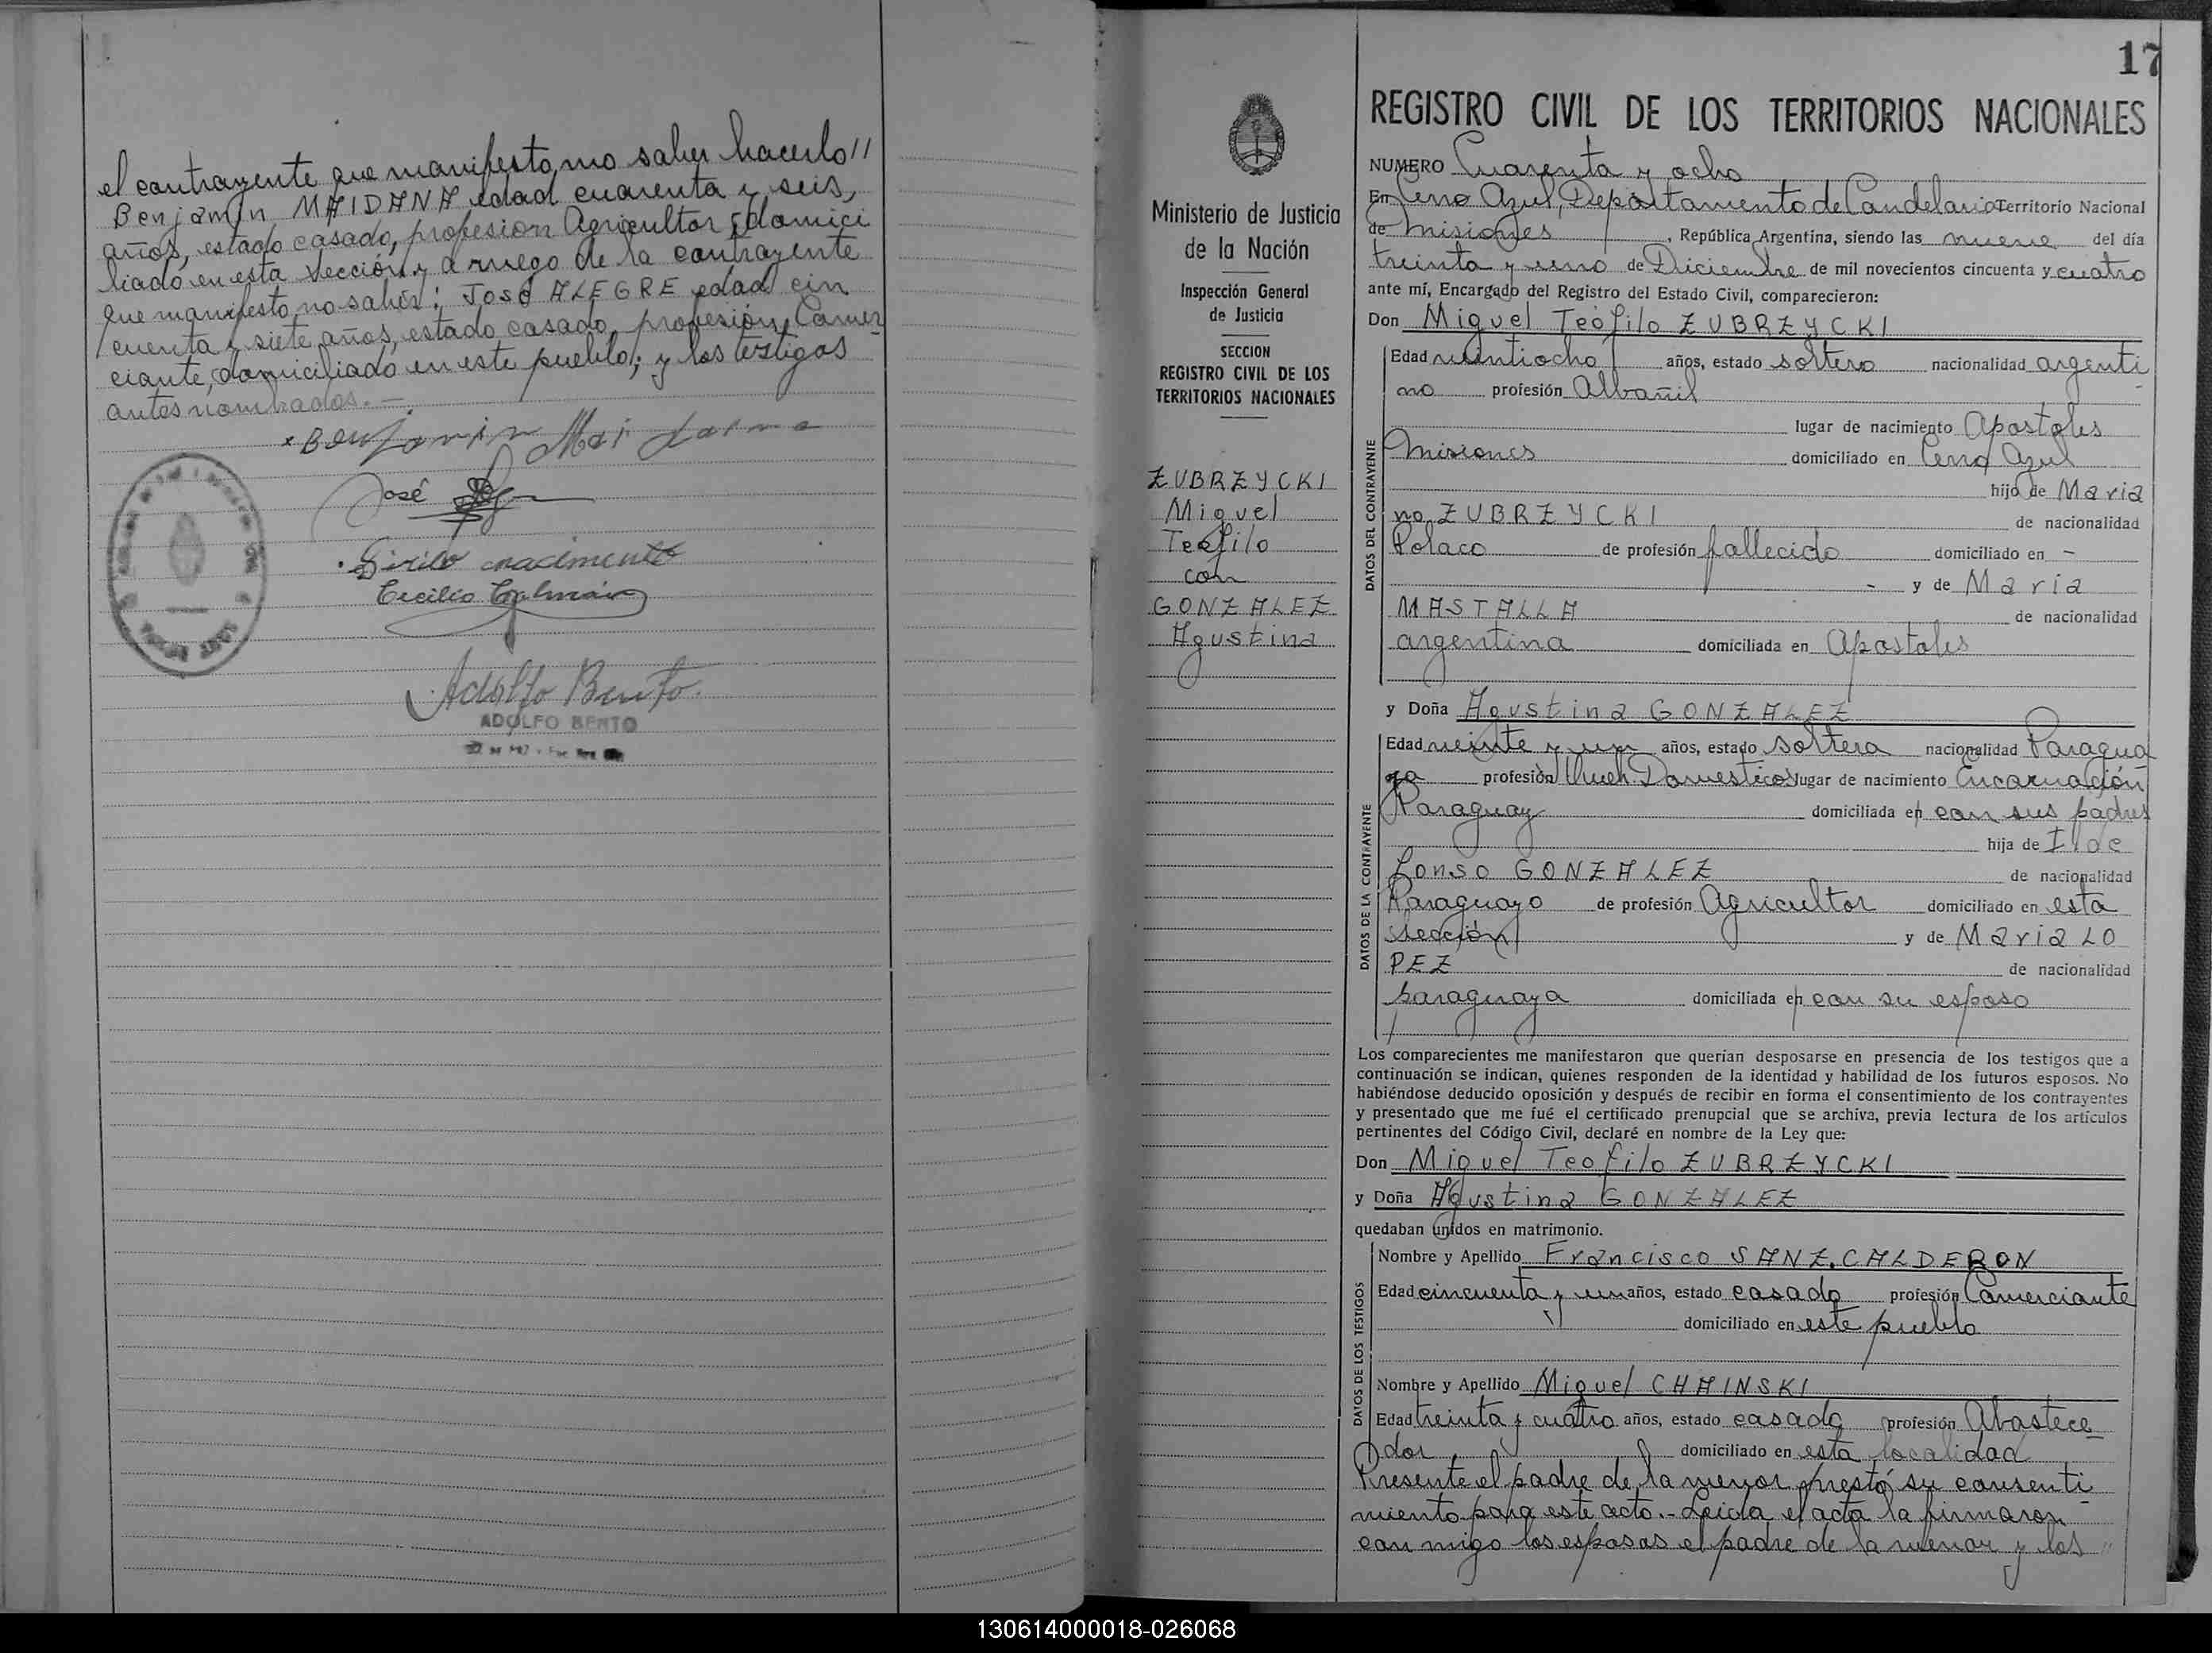 el contrayente que manifesto no saber hacerlo//
Benjamin MAIDANA edad cuarenta y seis,
años, estado casado, profesion Agricultor, domici
liado en esta sección y a ruego de la contrayente
que manifesto no saber: José ALEGRE edad cin
cuenta y siete años, estado casado, profesión, Comer
ciante, domiciliado en este pueblo; y los testigos
antes nombrados.-
Benjamin Mai dana
José
Cirilo nacimento
Cecilio
Adolfo Bento.
ADOLFO BENTO
17
Ministerio de Justicia
de la Nación
Inspección General
de Justicia
SECCION
REGISTRO CIVIL DE LOS
TERRITORIOS NACIONALES
ZUBRZYCKI
Miguel
Teófilo
con
GONZALEZ
Agustina
REGISTRO CIVIL DE LOS TERRITORIOS NACIONALES
NUMERO Cuarenta y ocho
En Cerro Azul, Departamento de Candelaria Territorio Nacional
de Misiones, República Argentina, siendo las nueve del día
treinta y uno de Diciembre de mil novecientos cincuenta y cuatro
ante mí, Encargado del Registro del Estado Civil, comparecieron:
Don Miguel Teófilo ZUBRZYCKI
DATOS DEL CONTRAYENTE
Edad veintiocho años, estado soltero nacionalidad argenti
no profesión Albañil
lugar de nacimiento Apostoles
Misiones domiciliado en Cerro Azul
hijo de Maria
no ZUBRZYCKI de nacionalidad
Polaco de profesión fallecido domiciliado en -
- y de María
MASTALLA de nacionalidad
argentina domiciliada en Apostoles
y Doña Agustina GONZALEZ
DATOS DE LA CONTRAYENTE
Edad veinte y un años, estado soltera nacionalidad Paragua
ya profesión Queh. Domesticos lugar de nacimiento Encarnación
Paraguay domiciliada en con sus padres
hija de Ilde
fonso GONZALEZ de nacionalidad
Paraguayo de profesión Agricultor domiciliado en esta
sección y de Maria LO
PEZ de nacionalidad
paraguaya domiciliada en con su esposo
Los comparecientes me manifestaron que querían desposarse en presencia de los testigos que a
continuación se indican, quienes responden de la identidad y habilidad de los futuros esposos. No
habiéndose deducido oposición y después de recibir en forma el consentimiento de los contrayentes
y presentado que me fué el certificado prenupcial que se archiva, previa lectura de los artículos
pertinentes del Código Civil, declaré en nombre de la Ley que:
Don Miguel Teofilo ZUBRZYCKI
y Doña Agustina GONZALEZ
quedaban unidos en matrimonio.
DATOS DE LOS TESTIGOS
Nombre y Apellido Francisco SANZ. CALDERON
Edad cincuenta y un años, estado casado profesión Comerciante
domiciliado en este pueblo
Nombre y Apellido Miguel CHAINSKI
Edad treinta y cuatro años, estado casado profesión Abastece
dor domiciliado en esta localidad
Presente el padre de la menor prestó su consenti
miento para este acto.- Leida el acta la firmaron
con migo los esposos el padre de la menor y los "
130614000018-026068